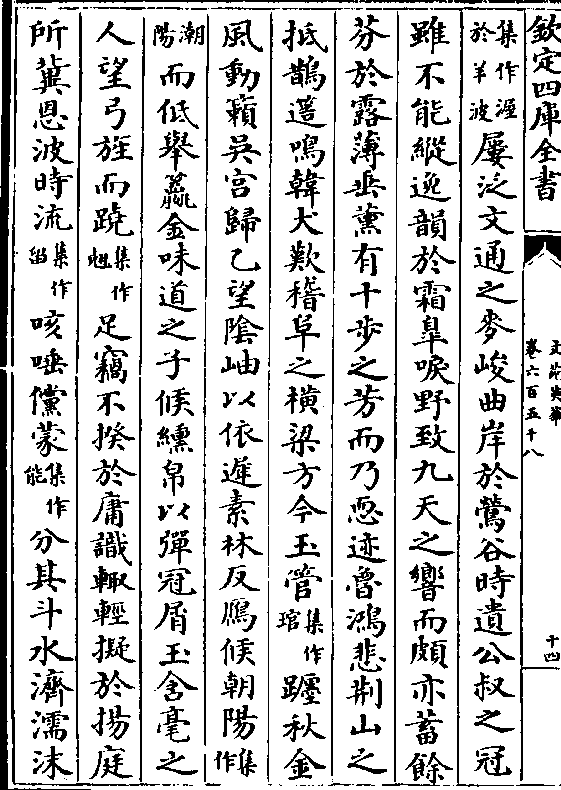 欽定四庫全書
文苑英華
卷六百五十八
十四
集作渥於羊波屢泛文通之麥峻曲岸於鶯谷時遺公叔之冠
雖不能縱逸韻於霜臯唳野致九天之響而頗亦蓄餘
芬於露薄岳薫有十步之芳而乃惌迹魯鴻悲荆山之
抵鵲遥鳴韓犬歎稽阜之横梁方今玉管集作琯躔秋金
風動籟吳宫歸乙望陰岫以依遲素林反鴈候朝陽集作
潮陽而低舉籯金味道之子候纁帛以彈冠屑玉含毫之
人望弓旌而蹺集作翹足竊不揆於庸識輙輕擬於揚庭
所冀恩波時流集作留咳唾儻蒙集作能分其斗水濟濡沫